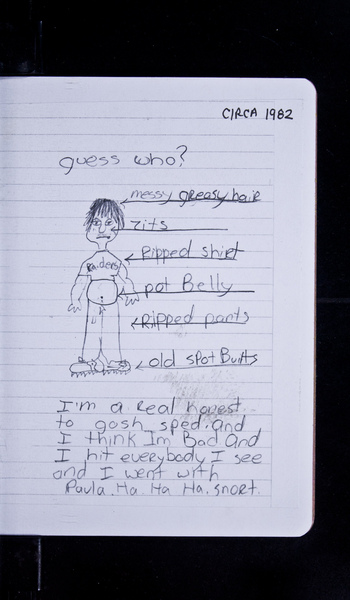 CIRCA 1982
guess who?
messy greasy hair
zits
Raiders
Ripped shirt
pot Belly
Ripped pants
old spotBuilts
I'm a Real honest
to gosh sped. and
I think Im Bad and
I hit everybody I see
and I went with
Paula. Ha. Ha Ha. snort.